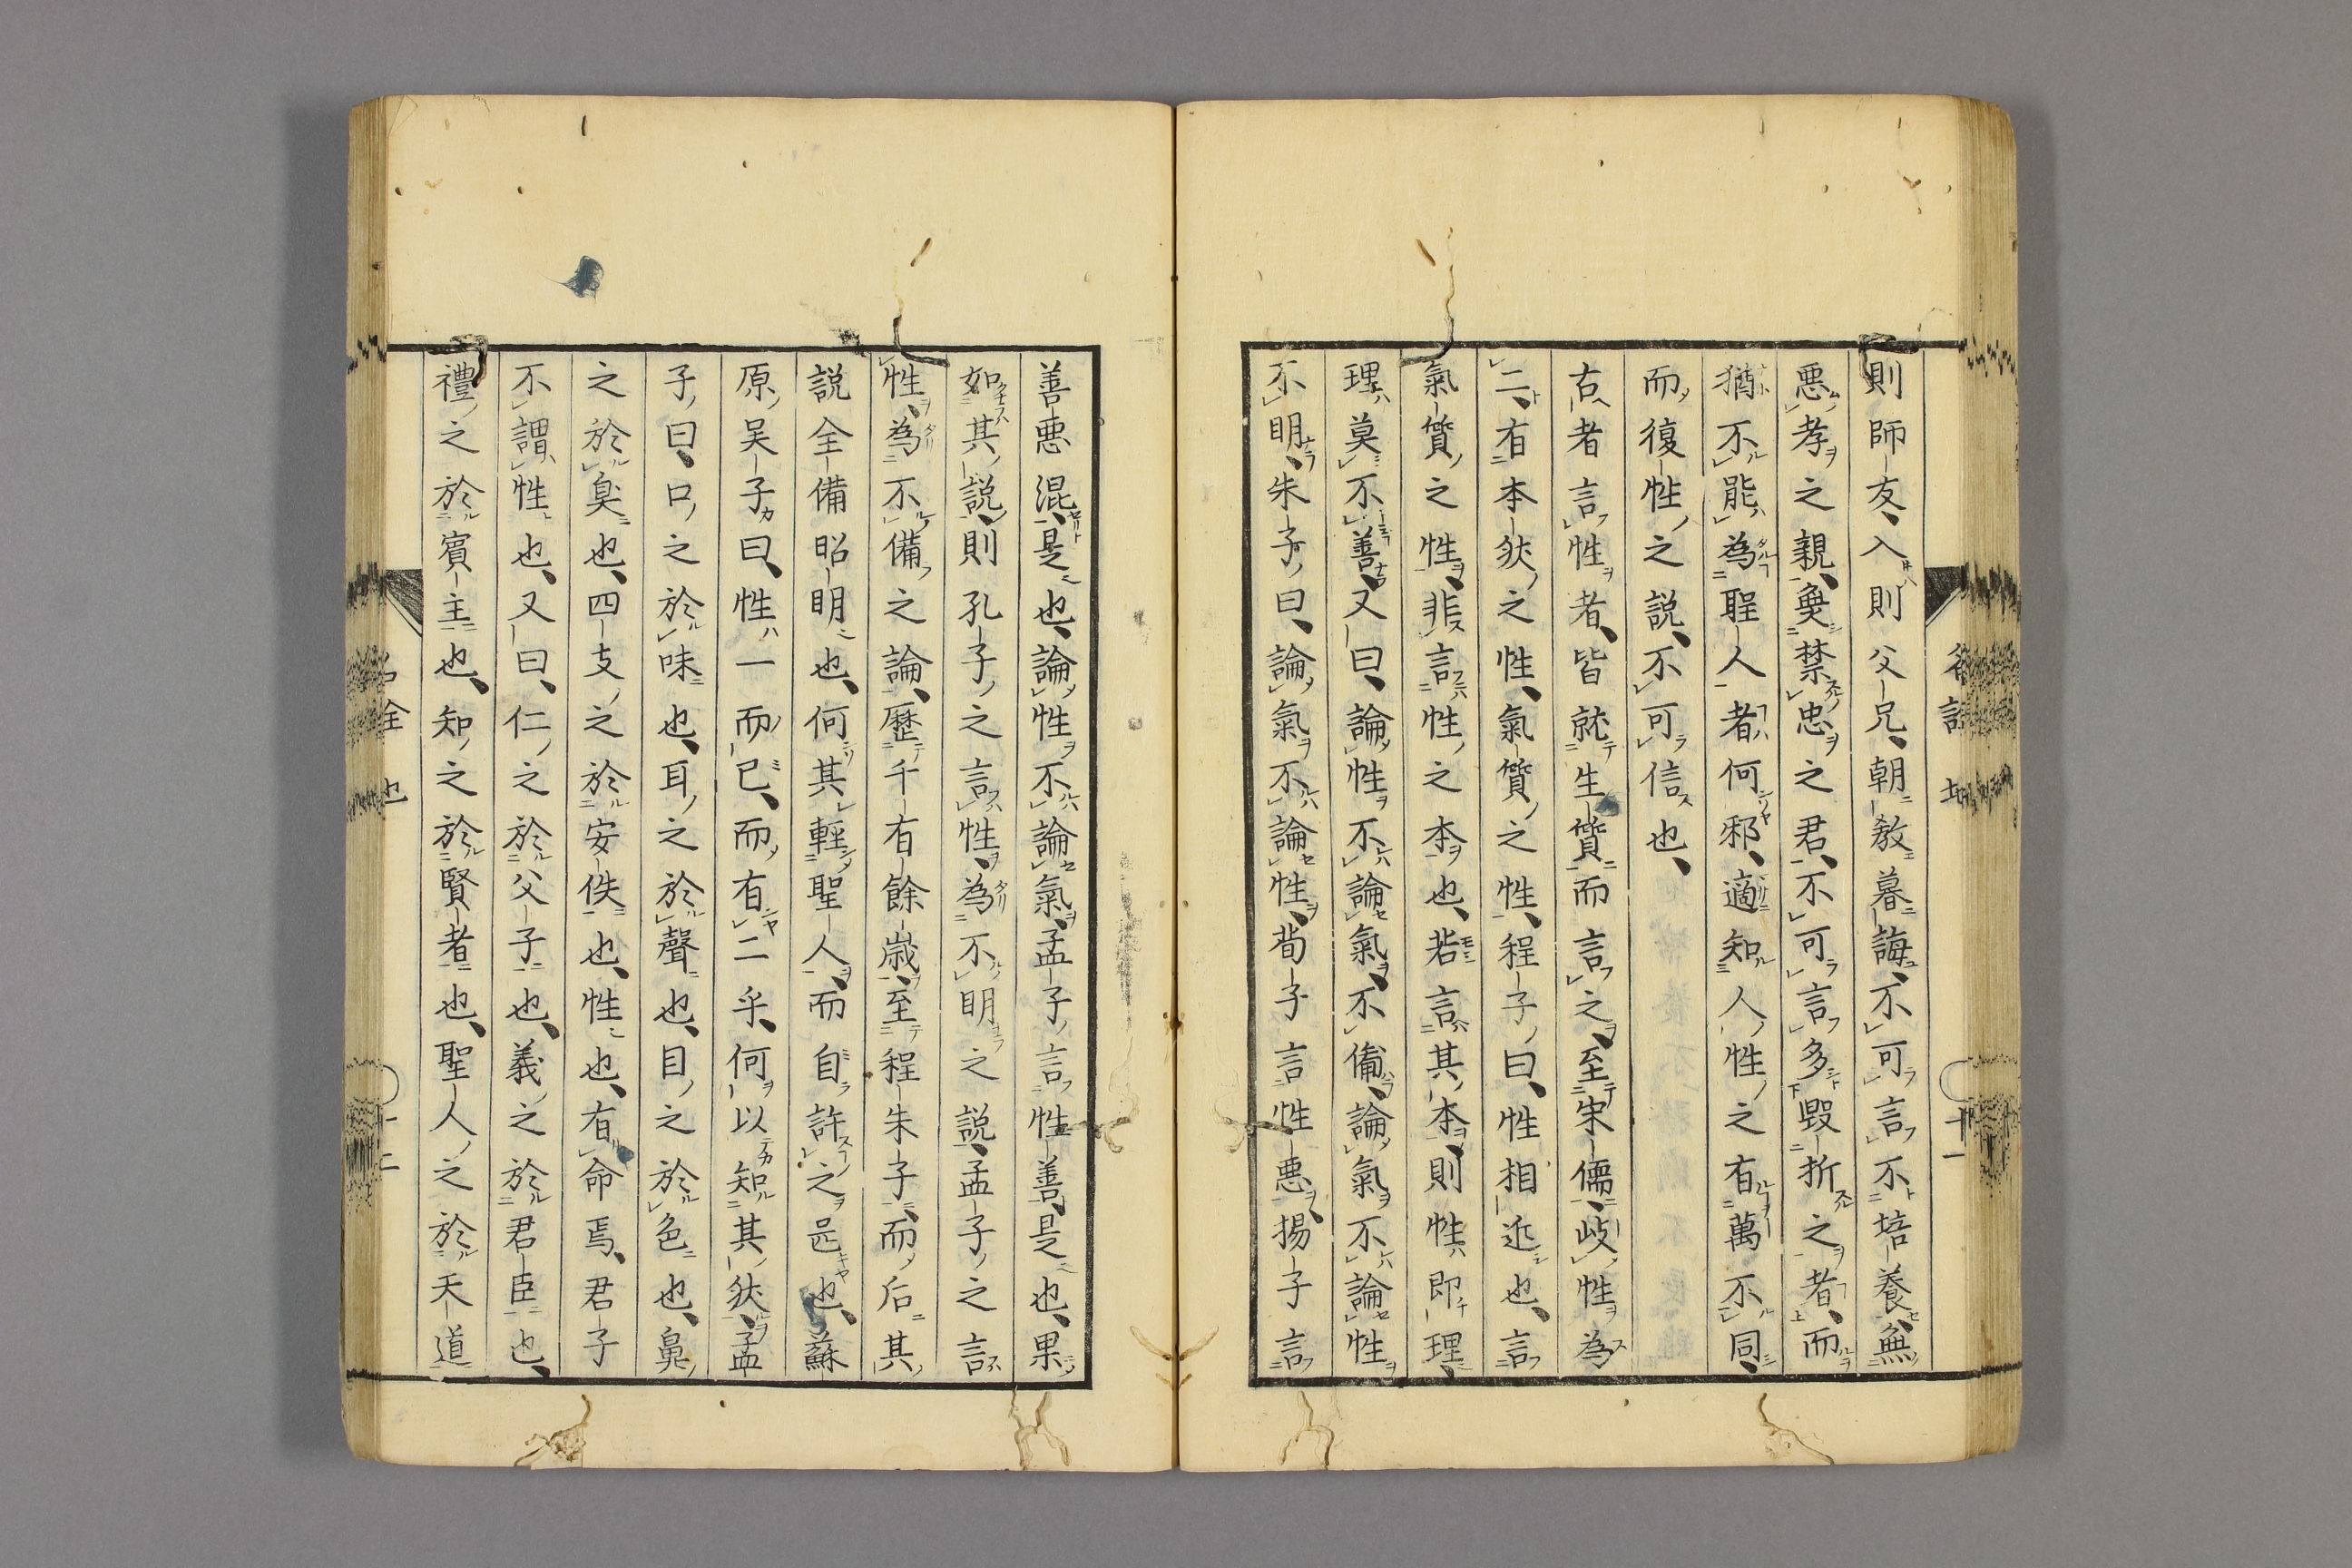 則師友、入則父兄、朝敎暮誨、不可言不培養、無
悪孝之親、奥禁忠之君、不可言多毀折之者、而
猶不能為聖人者何邪、適知人性之有萬不同、
而復性之説、不可信也、
古者言性者、皆就生質而言之、至宋儒、岐性為
二、有本然之性、氣質之性、程子曰、性相近也、言
氣質之性、非言性之本也、若言其本、則性即理、
理莫不善、又曰、論性不論氣、不備、論氣不論性
不明、朱子曰、論氣不論性、荀子言性悪、揚子言
善悪混是也、論性不論氣、孟子言性善、是也、果
如其説、則孔子之言性、為不明之説、孟子之言
性、為不備之論、歴千有餘歳、至程朱子、而后其
説全備昭明也、何其軽聖人、而自許之足也、蘇
原吴子曰、性一而已、而有二乎、何以知其然、孟
子曰、口之於味也、耳之於聲也、目之於色也、鼻
之於臭也、四支之於安佚也、性也、有命焉、君子
不謂性也、又曰、仁之於父子也、義之於君臣也、
禮之於賓主也、知之於賢者也、聖人之於天道